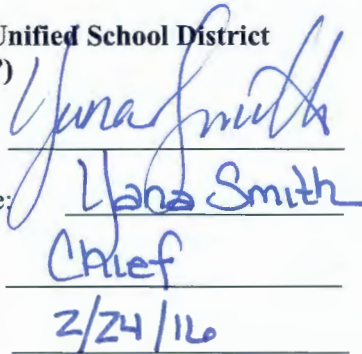 Unified School District
")
Yana Smith
e: Yana Smith
Chief
2/24/16